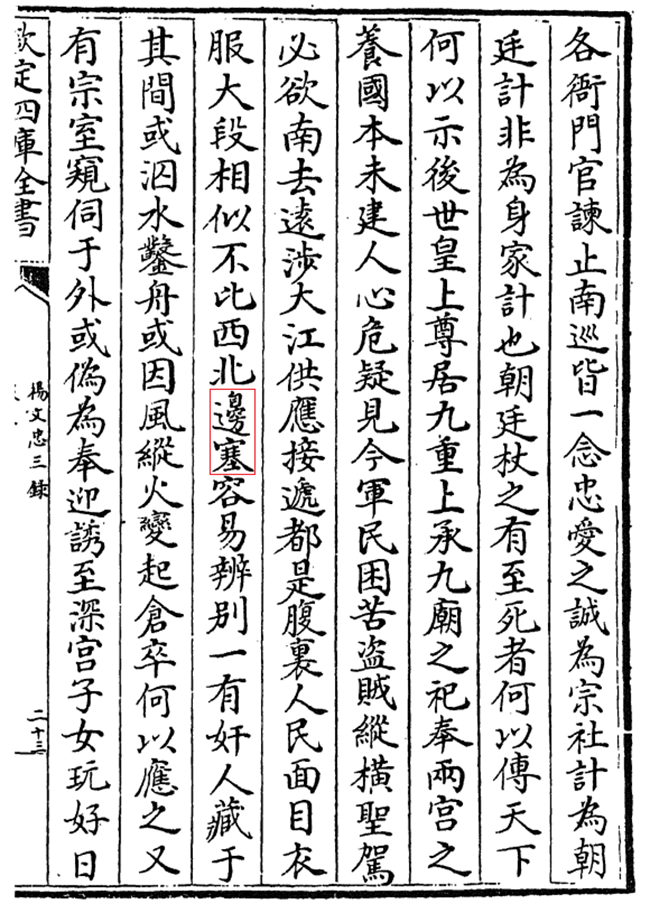 各衙門官諫止南巡皆一念忠愛之誠為宗社計為朝
廷計非為身家計也朝廷杖之有至死者何以傳天下
何以示後世皇上尊居九重上承九廟之祀奉兩宫之
養國本未建人心危疑見今軍民困苦盗賊縱横聖駕
必欲南去遠涉大江供應接遞都是腹裏人民面目衣
服大段相似不比西北邊塞容易辨别一有奸人藏于
其間或泅水鑿舟或因風縱火變起倉卒何以應之又
有宗室窺伺于外或偽為奉迎誘至深宫子女玩好日
欽定四庫全書
楊文忠三錄
二十三